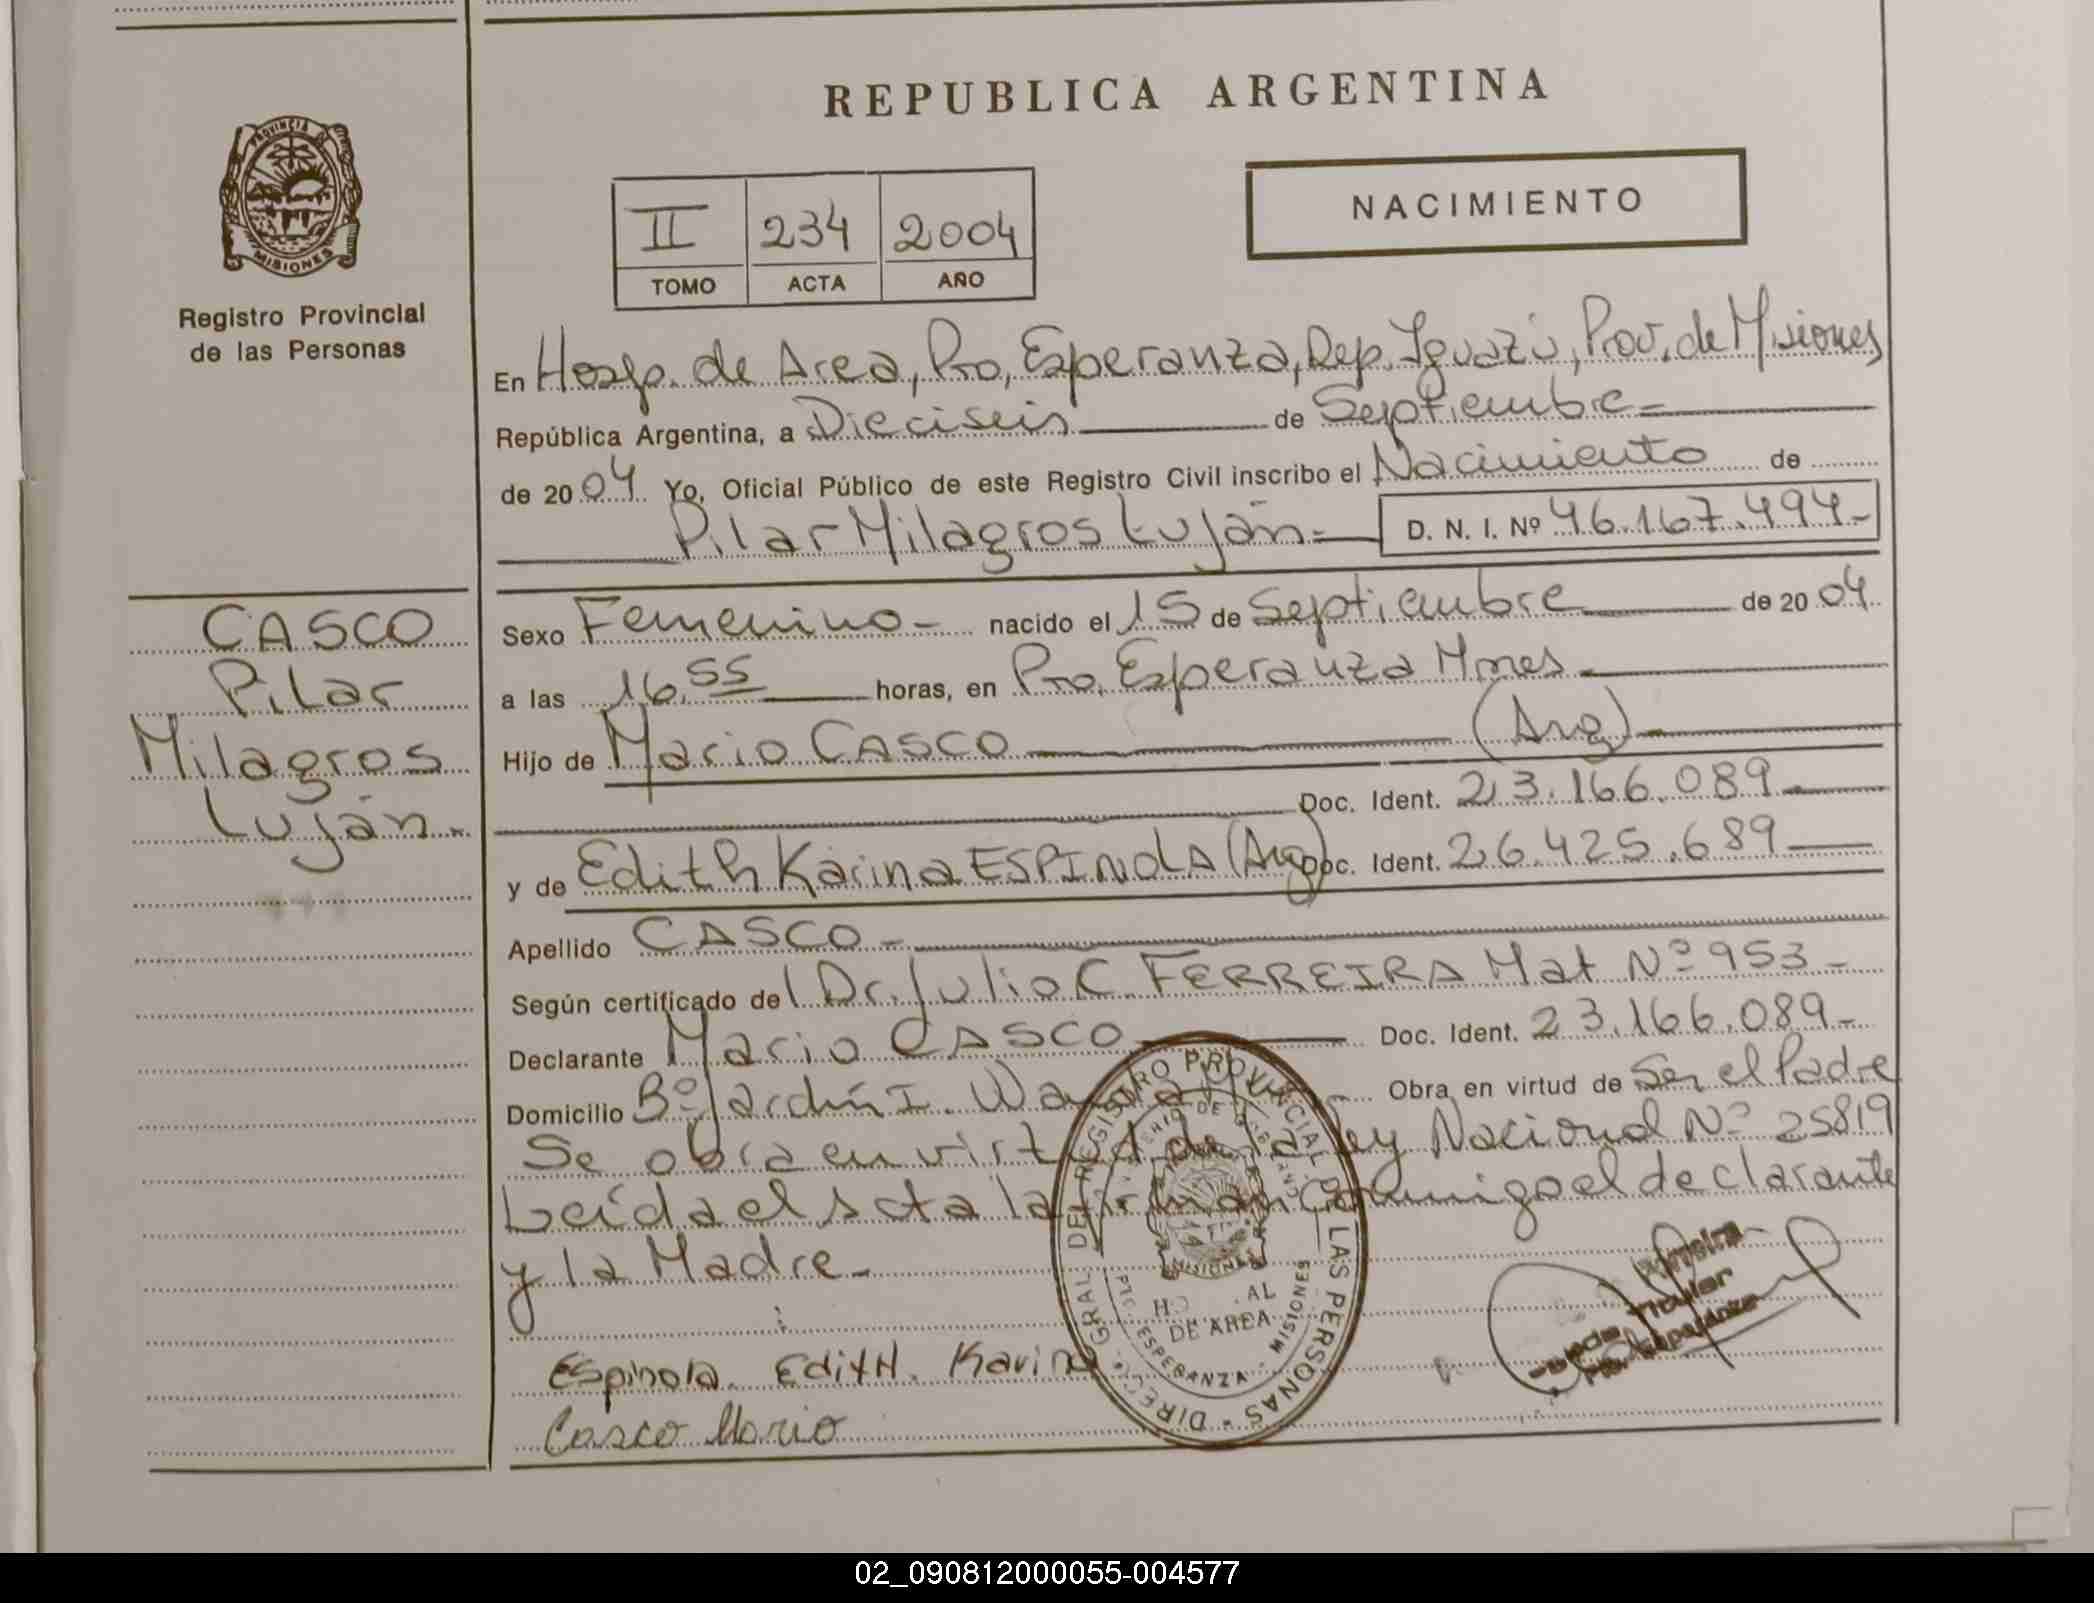 REPUBLICA ARGENTINA
PROVINCIA DE
MISIONES
Registro Provincial
de las Personas
II 234 2004
TOMO ACTA AÑO
NACIMIENTO
En Hosp. de Area, Pto, Esperanza, Dep. Iguazú, Prov. de Misiones
República Argentina, a Dieciseis de Septiembre
de 2004 Yo, Oficial Público de este Registro Civil inscribo el Nacimiento de
Pilar Milagros Luján.- D. N. I. Nº 46.167.494-
CASCO
Pilar
Milagros
Luján.
Sexo Femenino- nacido el 15 de Septiembre de 2004
a las 16,55 horas, en Pto. Esperanza Mnes.
Hijo de Mario CASCO (Arg)
Doc. Ident. 23.166.089
y de Edith Karina ESPINOLA (Arg) Doc. Ident. 26.425.689
Apellido CASCO-
Según certificado del Dr. Julio C. FERREIRA Mat Nº 953-
Declarante Mario CASCO Doc. Ident. 23.166.089-
Domicilio Bº Jardín I. Obra en virtud de Ser el Padre
Se obra en virtud de la Ley Nacional Nº 25819
Leída el acta la firman conmigo el declarante
y la Madre-
Espinola. Edith. Karina
Casco Mario
DIRECC. GRAL. DEL REGISTRO PROVINCIAL DE LAS PERSONAS
MISIONES
DE AREA
ESPERANZA - MISIONES
Titular
02_090812000055-004577